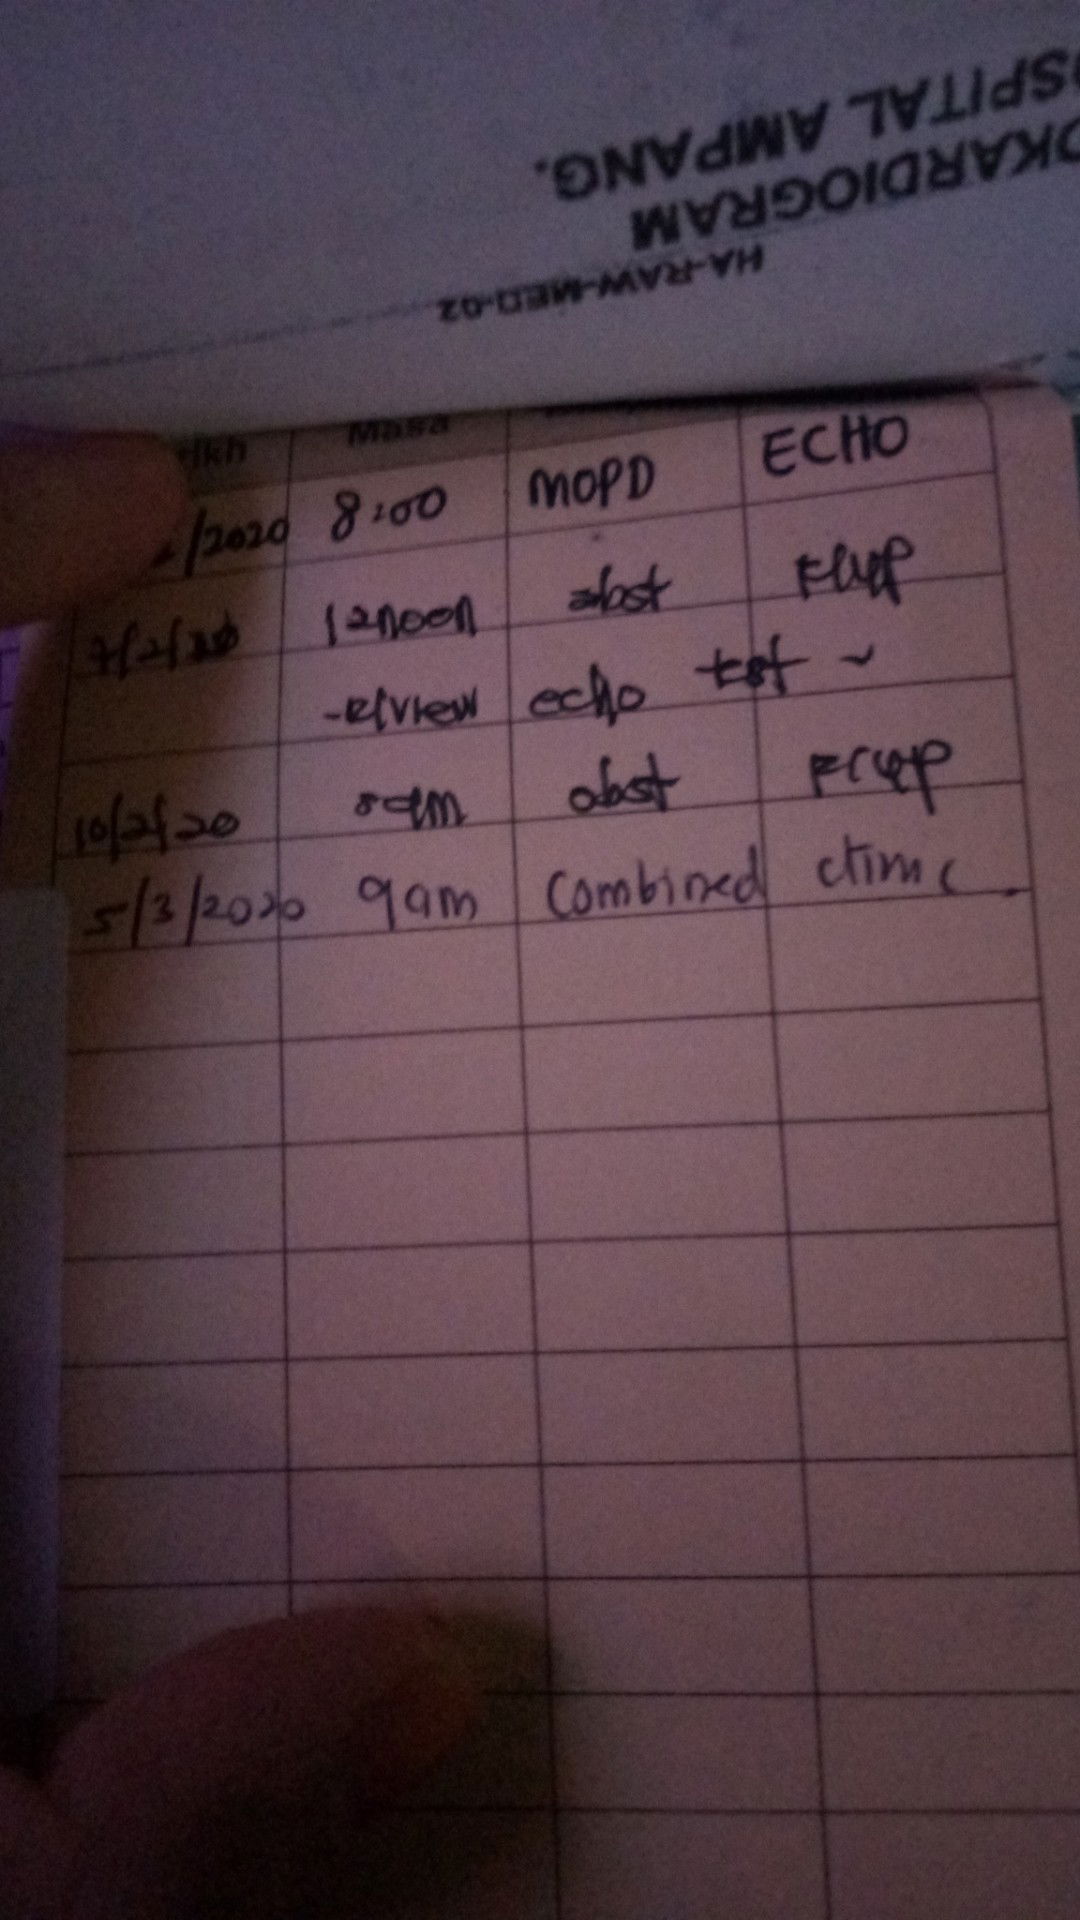 SPITAL AMPANG.
OKARDIOGRAM
HA-RAW-MED-02
Masa
/2020 8:00 MOPD ECHO
7/2/20 12noon obst
-R/view echo
10/2/20 8am obst
5/3/2020 9am Combined clinic